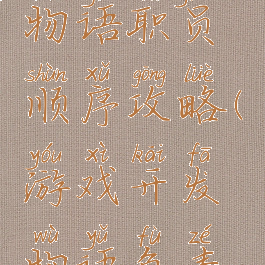 物语职员
shùn xù gōng lüè
顺序攻略(
yóu xì kāi fā
游戏开发
wù yǔ fù zé
物语负责